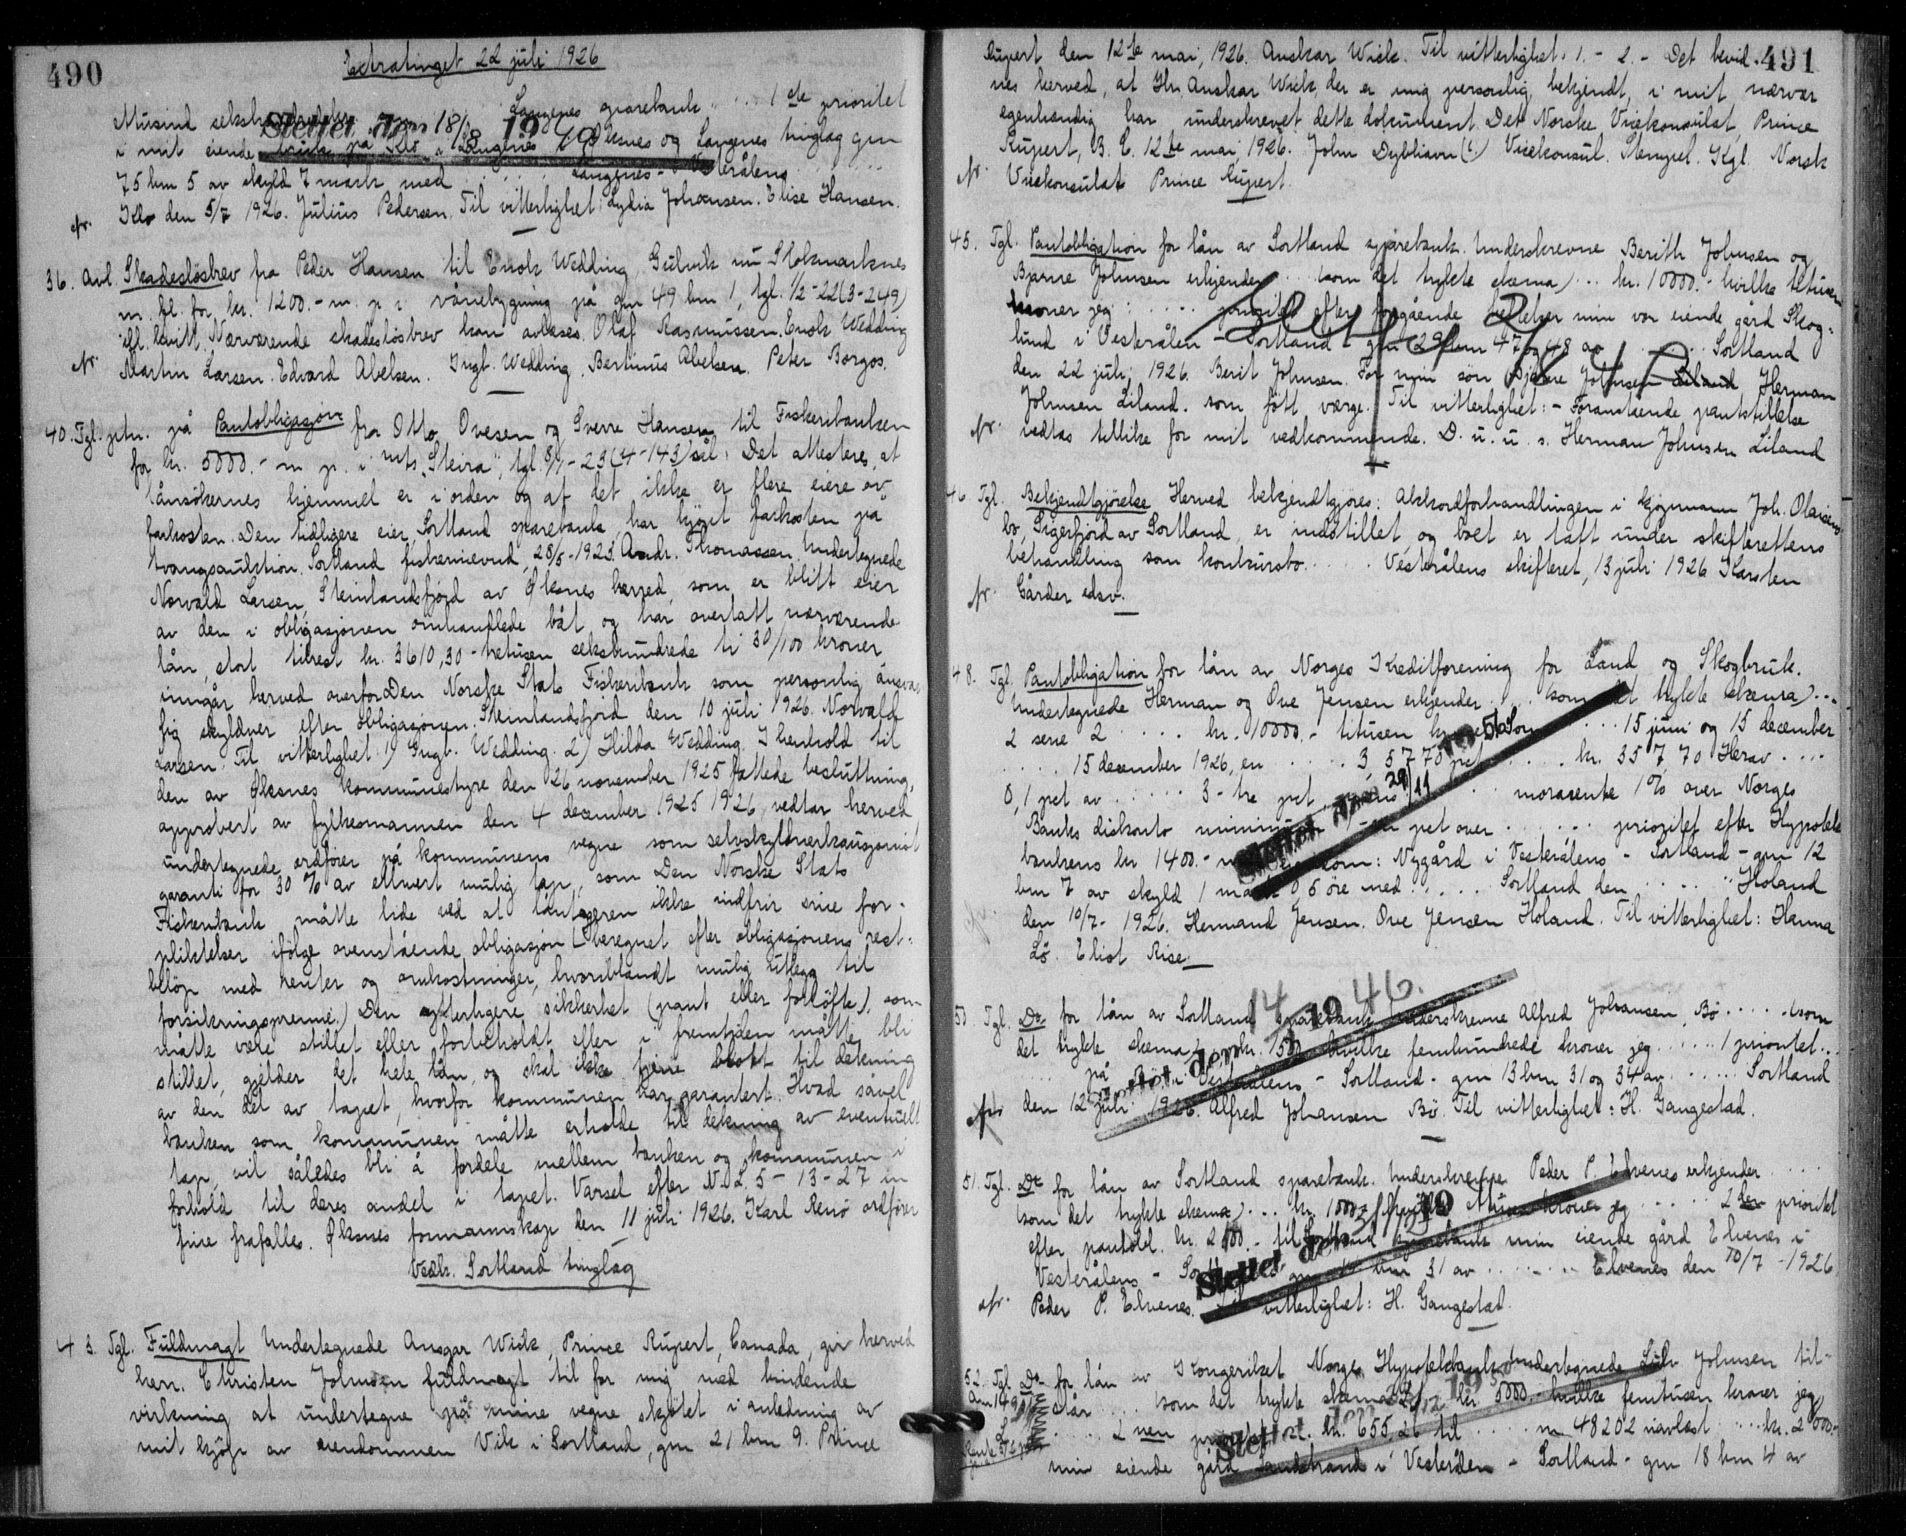 490
Extratinget 22 juli 1926
Langenes sparebank .... 1ste prioritet
Slettet den 18/8 19
i mit eiende bruk på Klo i Langenes Øksnes og Langenes tinglag gnr
75 brn 5 av skyld 7 mark med ...... Langenes - Vesterålens ......
Klo den 5/7 1926. Julius Pedersen. Til vitterlighet: Lydia Johansen. Elise Hansen.
36. Avl. Skadesløsbrev fra Peder Hansen til Enok Wedding Gulvik nu Stokmarknes
m. fl. for kr. 1200.- m. p. i våningbygning på gnr 49 brn 1, tgl. 1/2-22(3-249)
ifl. kvitt. Nærværende skadesløsbrev kan avleses. Olaf Rasmussen. Enok Wedding
Martin Larsen. Edvard Abelsen. Ingt. Wedding. Bertinus Abelsen. Peter Borgos.
40. Tgl. ptn. på Pantobligasjon fra Otto Ovesen og Sverre Hansen til Fiskeribanken
for kr. 5000.- m. p. i m/k "Steira", tgl. 8/1-23(4-143) sål: Det attesteres, at
lånsøkernes hjemmel er i orden og at det ikke er flere eiere av
farkosten. Den tidligere eier, Sortland sparebank, har kjøpt farkosten på
tvangsauktion. Sortland fiskerinevnd, 28/5-1925. Andr. Thomassen. Undertegnede
Norvald Larsen, Steinlandsfjord av Øksnes herred, som er blitt eier
av den i obligasjonen omhandlede båt og har overtatt nærværende
lån, stort tilrest kr. 3610,30 - tretusen sekshundrede ti 30/100 kroner,
inngår herved overfor Den Norske Stats Fiskeribank som personlig ansvar-
lig skyldner efter obligasjonen. Steinlandsfjord den 10 juli 1926. Norvald
Larsen. Til vitterlighet: 1) Ingt. Wedding. 2) Hilda Wedding. I henhold til
den av Øksnes kommunestyre den 26 november 1925 fattede beslutning,
approbert av fylkesmannen den 4 december 1925 1926, vedtar herved
undertegnede ordfører på kommunens vegne som selvskyldnerkausjonist
garanti for 30 % av ethvert mulig tap, som Den Norske Stats
Fiskeribank måtte lide ved at låntageren ikke indfrir sine for-
pliktelser ifølge ovenstående obligasjon (beregnet efter obligasjonens rest-
beløp med renter og omkostninger, hvoriblandt mulig utlegg til
forsikringspremie.) Den ytterligere sikkerhet (pant eller forløfte), som
måtte være stillet eller forbeholdt eller i fremtiden måtte bli
stillet, gjelder det hele lån, og skal ikke tjene blott til dekning
av den del av tapet, hvorfor kommunen har garantert. Hvad såvel
banken som kommunen måtte erholde til dekning av eventuelt
tap, vil således bli å fordele mellem banken og kommunen i
forhold til deres andel i tapet. Varsel efter N.L. 5-13-27 in
fine frafalles. Øksnes formannskap den 11 juli 1926. Karl Renø ordfører
Vedk. Sortland tinglag
43. Tgl. Fuldmagt Undertegnede Ansgar Wick, Prince Rupert, Canada, gir herved
herr. Christen Johnsen fuldmagt til for mig med bindende
virkning at undertegne på mine vegne skjøtet i anledning av
mit kjøp av eiendommen Vik i Sortland, gnr 21 brn 9. Prince
491
Rupert den 12te mai, 1926. Anskar Wick. Til vitterlighet: 1. - 2. - Det bevid-
nes herved, at Hr. Anskar Wick der er mig personlig bekjendt, i mit nærvær
egenhændig har underskrevet dette dokument. Det Norske Vicekonsulat, Prince
Rupert, B. C. 12te mai, 1926. John Dybhavn (s.) Vicekonsul. Stempel. Kgl. Norsk
Vicekonsulat Prince Rupert.
45. Tgl. Pantobligation for lån av Sortland sparebank. Underskrevne Berith Johnsen og
Bjarne Johnsen erkjender ... (som det trykte skema) ... kr. 10000.- hvilke titusen
kroner jeg ...... prioritet efter foregående heftelser min vor eiende gård Skog-
lund i Vesterålen - Sortland - gnr 29 brn 47 og 48 av ...... Sortland
den 22 juli, 1926. Berit Johnsen. For min søn Bjarne Johnsen Liland Herman
Johnsen Liland. som født værge. Til vitterlighet: - Foranstående pantstillelse
vedtas tillike for mit vedkommende. D. u. u. s. Herman Johnsen Liland
46. Tgl. Bekjendtgjørelse Herved bekjendtgjøres: Akkordforhandlingen i kjøpmann Joh. Olaisens
bo, Sigerfjord av Sortland, er indstillet, og boet er tatt under skifterettens
behandling som konkursbo ..... Vesterålens skifteret, 13 juli 1926 Karsten
Gårder edsv.
48. Tgl. Pantobligation for lån av Norges Kreditforening for Land og Skogbruk.
Undertegnede Herman og Ove Jensen erkjender ... (som det trykte skema) ...
2 serie 2 .... kr. 10000.- titusen kroner ... 15 juni og 15 december
.... 15 december 1926, en ..... 3,5770 pct ..... kr. 357,70 Herav ....
0,1 pct av ..... 3- tre pct ..... morarente 1% over Norges
Banks diskonto minimum ... pct over ...... prioritet efter Hypotek-
bankens kr 1400.- ... eiendom: Nygård i Vesterålens - Sortland - gnr 12
brn 7 av skyld 1 mark 05 øre med ..... Sortland den ...... Holand
den 10/7- 1926. Hermand Jensen. Ove Jensen Holand. Til vitterlighet: Hanna
Lø. Eliot Rise
Slettet den 29/11
14/ 1946.
50 Tgl. Do. for lån av Sortland sparebank Underskrevne Alfred Johansen, Bø ..... (som
det trykte skema) ... kr. 1500 hvilke femhundrede kroner jeg ...... 1 prioritet ...
.... på Bø i Vesterålens - Sortland - gnr 13 brn 31 og 34 av ...... Sortland
den 12 juli 1926. Alfred Johansen Bø. Til vitterlighet: H. Gangestad.
51. Tgl. Do. for lån av Sortland sparebank. Underskrevne Peder P. Elvenes erkjender ....
(som det trykte skema) ... kr. 1000.- hvilke ettusen kroner jeg ..... 2den prioritet
efter panthold. kr. 2100.- til Sortland sparebank min eiende gård Elvenes i
Vesterålens - Sortland - gnr brn 31 av ....... Elvenes den 10/7 - 1926
Peder P. Elvenes. Til vitterlighet: H. Gangestad.
Slettet den 19
52. Tgl. Do for lån av Kongeriket Norges Hypotekbank. Undertegnede Johnsen til-
står ... (som det trykte skema) ... kr. 5000.- hvilke femtusen kroner jeg
.... 2nen prioritet ... kr. 655,26 til .... nr 48202 navlæst .... kr. 2000.-
min eiende gård Sandstrand i Vesterålen - Sortland - gnr 18 brn 4 av
Slettet den